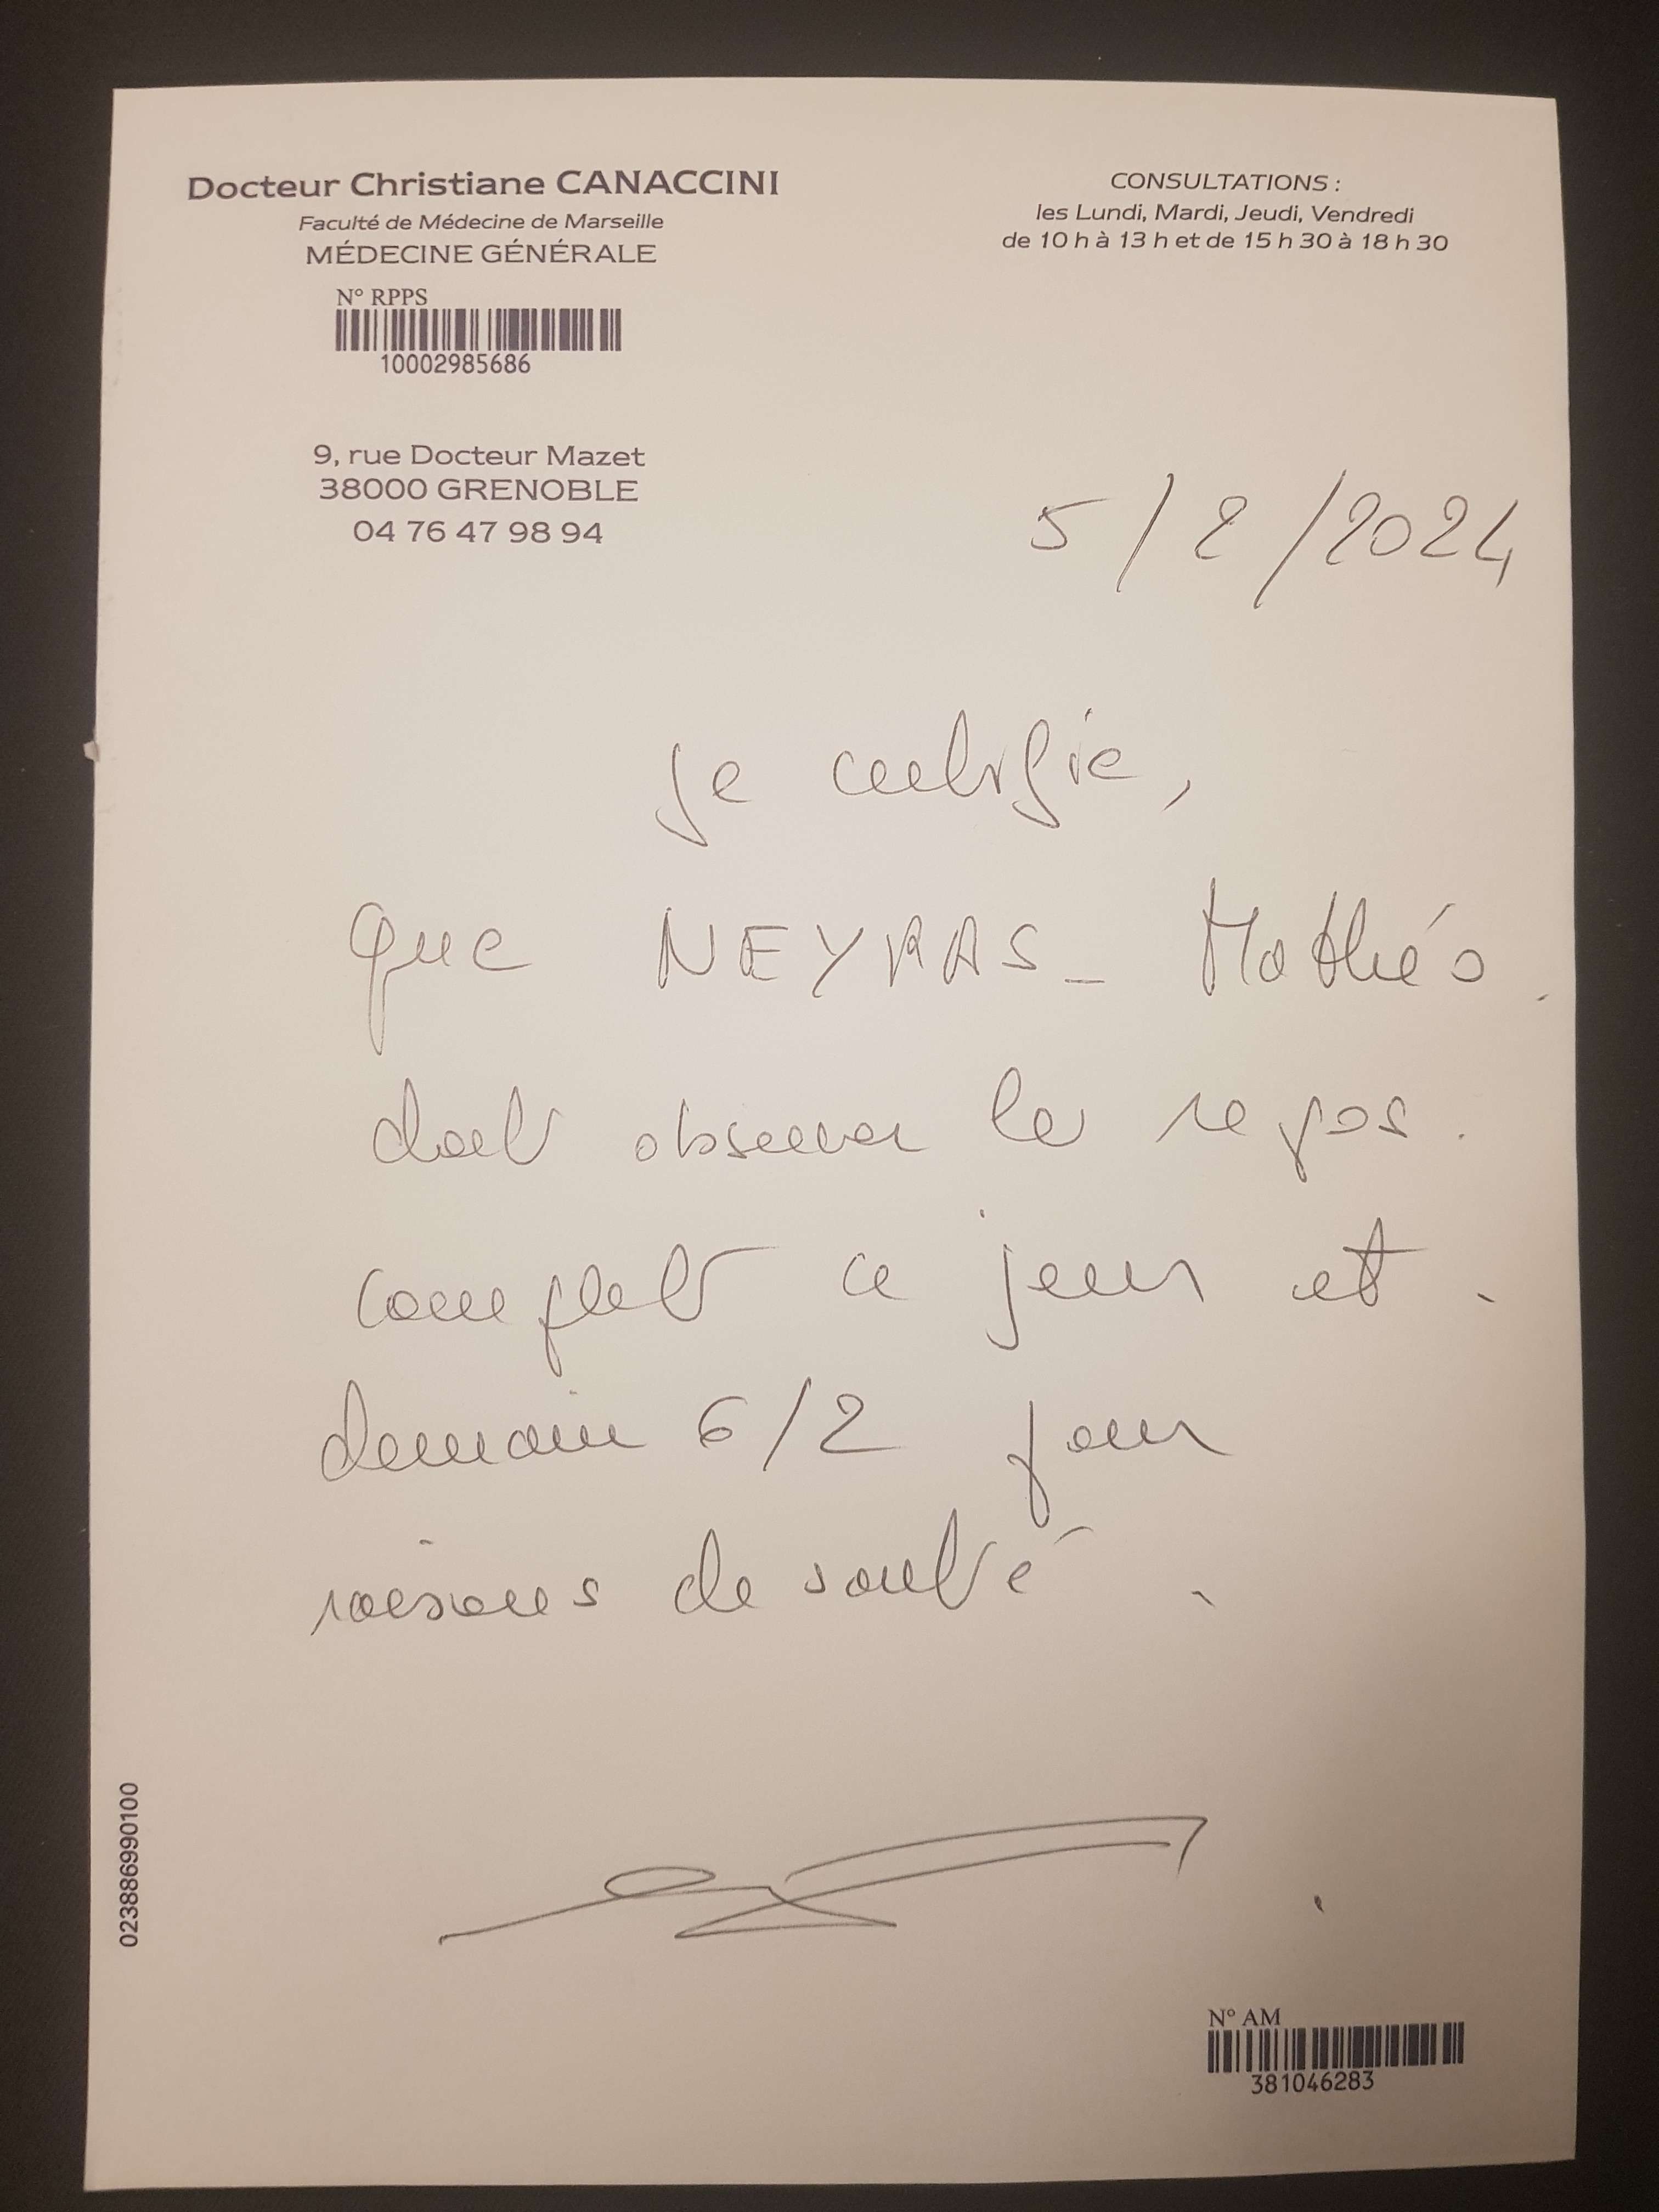 Docteur Christiane CANACCINI
Faculté de Médecine de Marseille
MÉDECINE GÉNÉRALE
N° RPPS
10002985686
9, rue Docteur Mazet
38000 GRENOBLE
04 76 47 98 94
CONSULTATIONS :
les Lundi, Mardi, Jeudi, Vendredi
de 10 h à 13 h et de 15 h 30 à 18 h 30
5/2/2024
Je certifie,
que NEYRAS_ Mathéo
doit observer le repos.
complet ce jour et
demain 6/2 pour
raisons de santé.
023886990100
N° AM
381046283